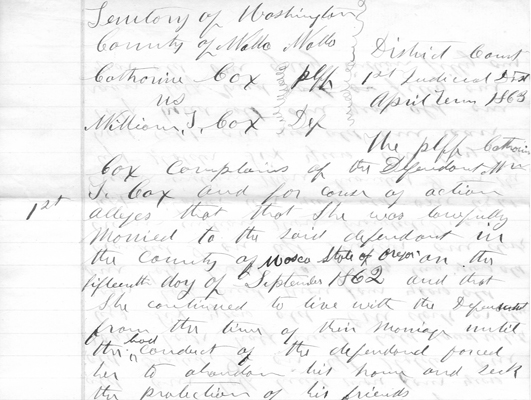 Territory of Washington
County of Walla Walla
District Court
Catharine Cox plff
1st Judicial Dist
vs
April Term 1863
William T. Cox Df
The plff Catharine
Cox Complains of the Defendant Wm
T. Cox and for cause of action
1st
alleges that that she was lawfully
Married to the said defendant in
the County of Wasco State of Oregon on the
fifteenth day of September 1862 and that
She continued to live with the Defendant
from the time of their marriage until
the bad conduct of the defendand forced
her to abandon his home and seek
the protection of his friends